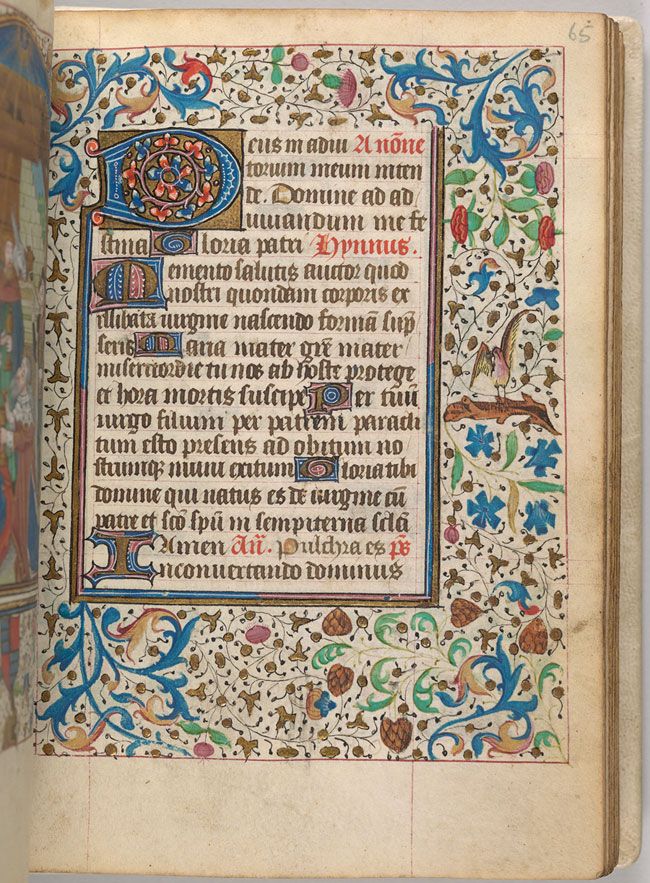 65
Deus in adiu A nōne
torium meum inten
de. Domine ad ad
iuuandum me fe
stina Gloria patri Hymnus.
Memento salutis auctor quod
nostri quondam corporis ex
illibata uirgine nascendo formā sūp
seris Maria mater grē mater
misericordie tu nos ab hoste protege
et hora mortis suscipe Per tuū
uirgo filium per patrem paracli
tum esto presens ad obitum no
strumque muni exitum Gloria tibi
domine qui natus es de uirgine cū
patre et scō spū in sempiterna sclā
Amen Añ. Pulchra es p̄s
Inconuertando dominus